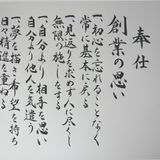 奉仕
創業の思い
一初心を忘れることなく
常に基本に戻る
一見返を求めず人に尽くし
無限の施しをする
一自分より相手を思い
自分より他人を気遣う
一夢を描き希望を持ち
日々精進を重ねる